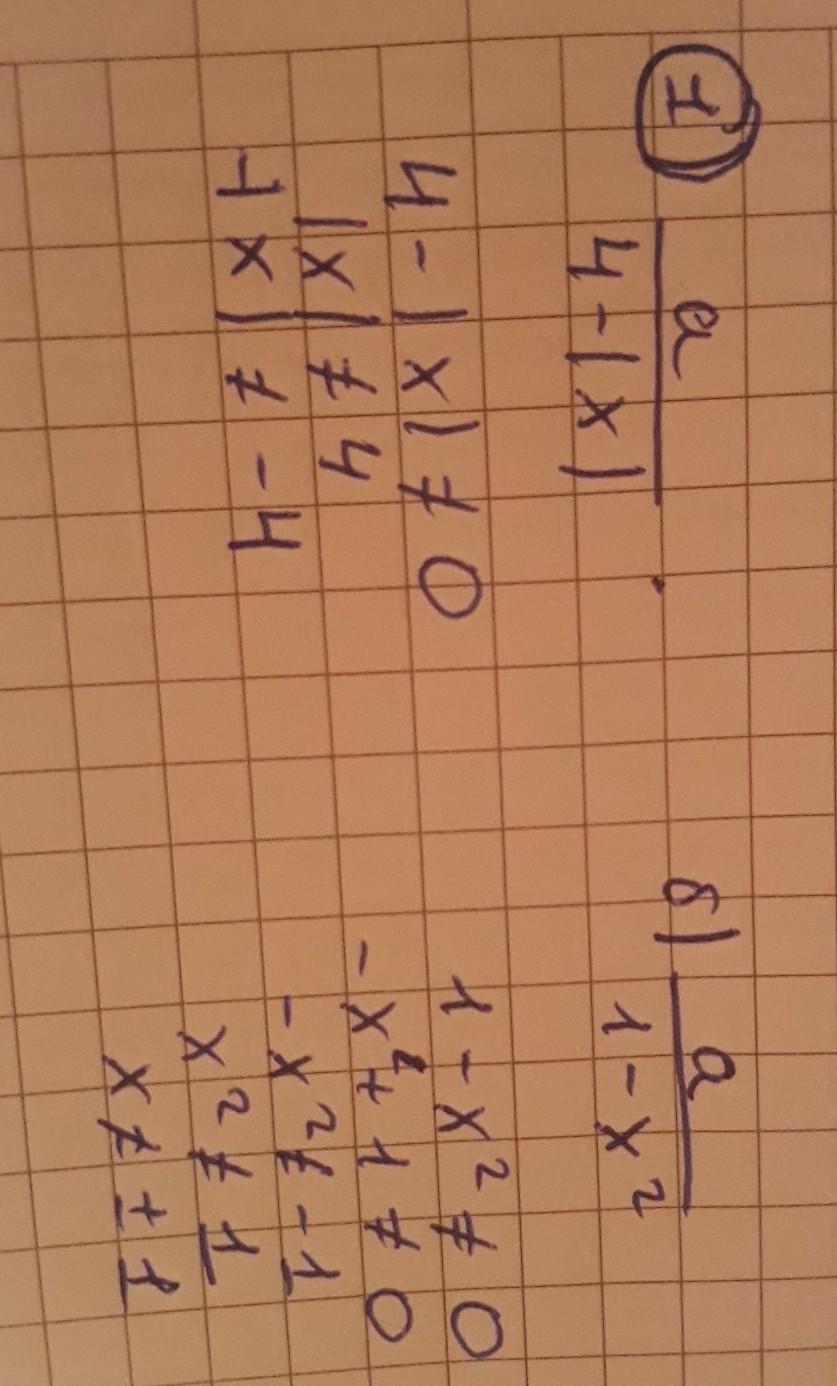 1
a
4-|x|
4-|x|≠0
|x|≠4
-|x|≠-4
б)
a
1-x²
1-x²≠0
-x²+1≠0
-x²≠-1
x²≠1
x≠±1